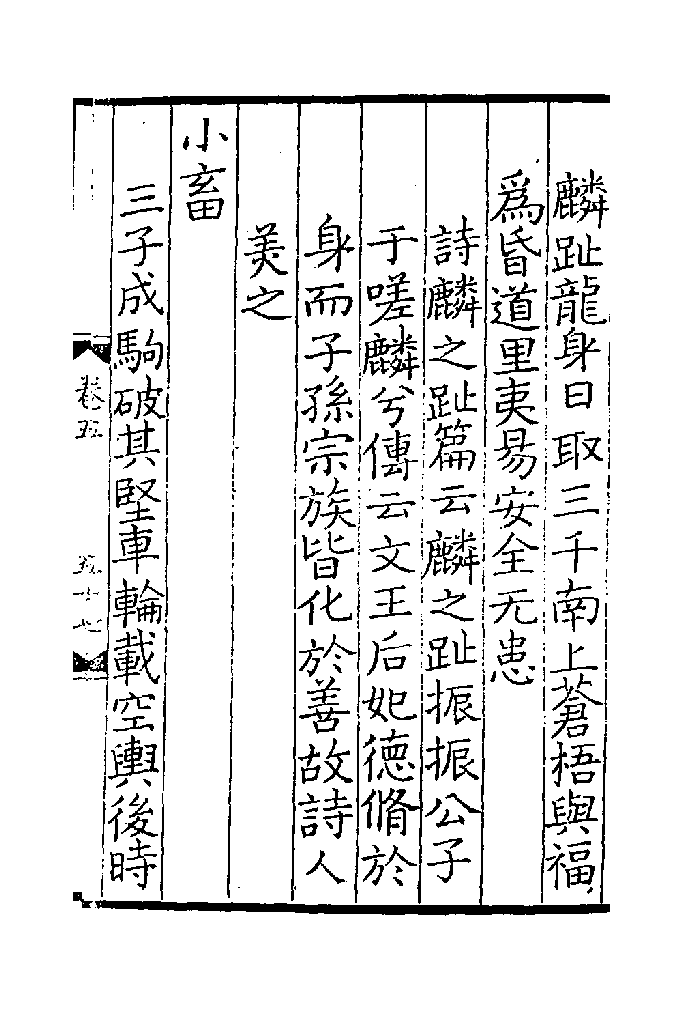 麟趾龍身日取三千南上蒼梧與福
爲昏道里夷易安全无患
詩麟之趾篇云麟之趾振振公子
于嗟麟兮傳云文王后妃德脩於
身而子孫宗族皆化於善故詩人
美之
小畜
三子成駒破其堅車輪載空輿後時
卷五
五十七